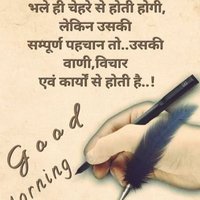 भले ही चेहरे से होती होगी,
लेकिन उसकी
सम्पूर्ण पहचान तो..उसकी
वाणी,विचार
एवं कार्यों से होती है..!
Good
Morning